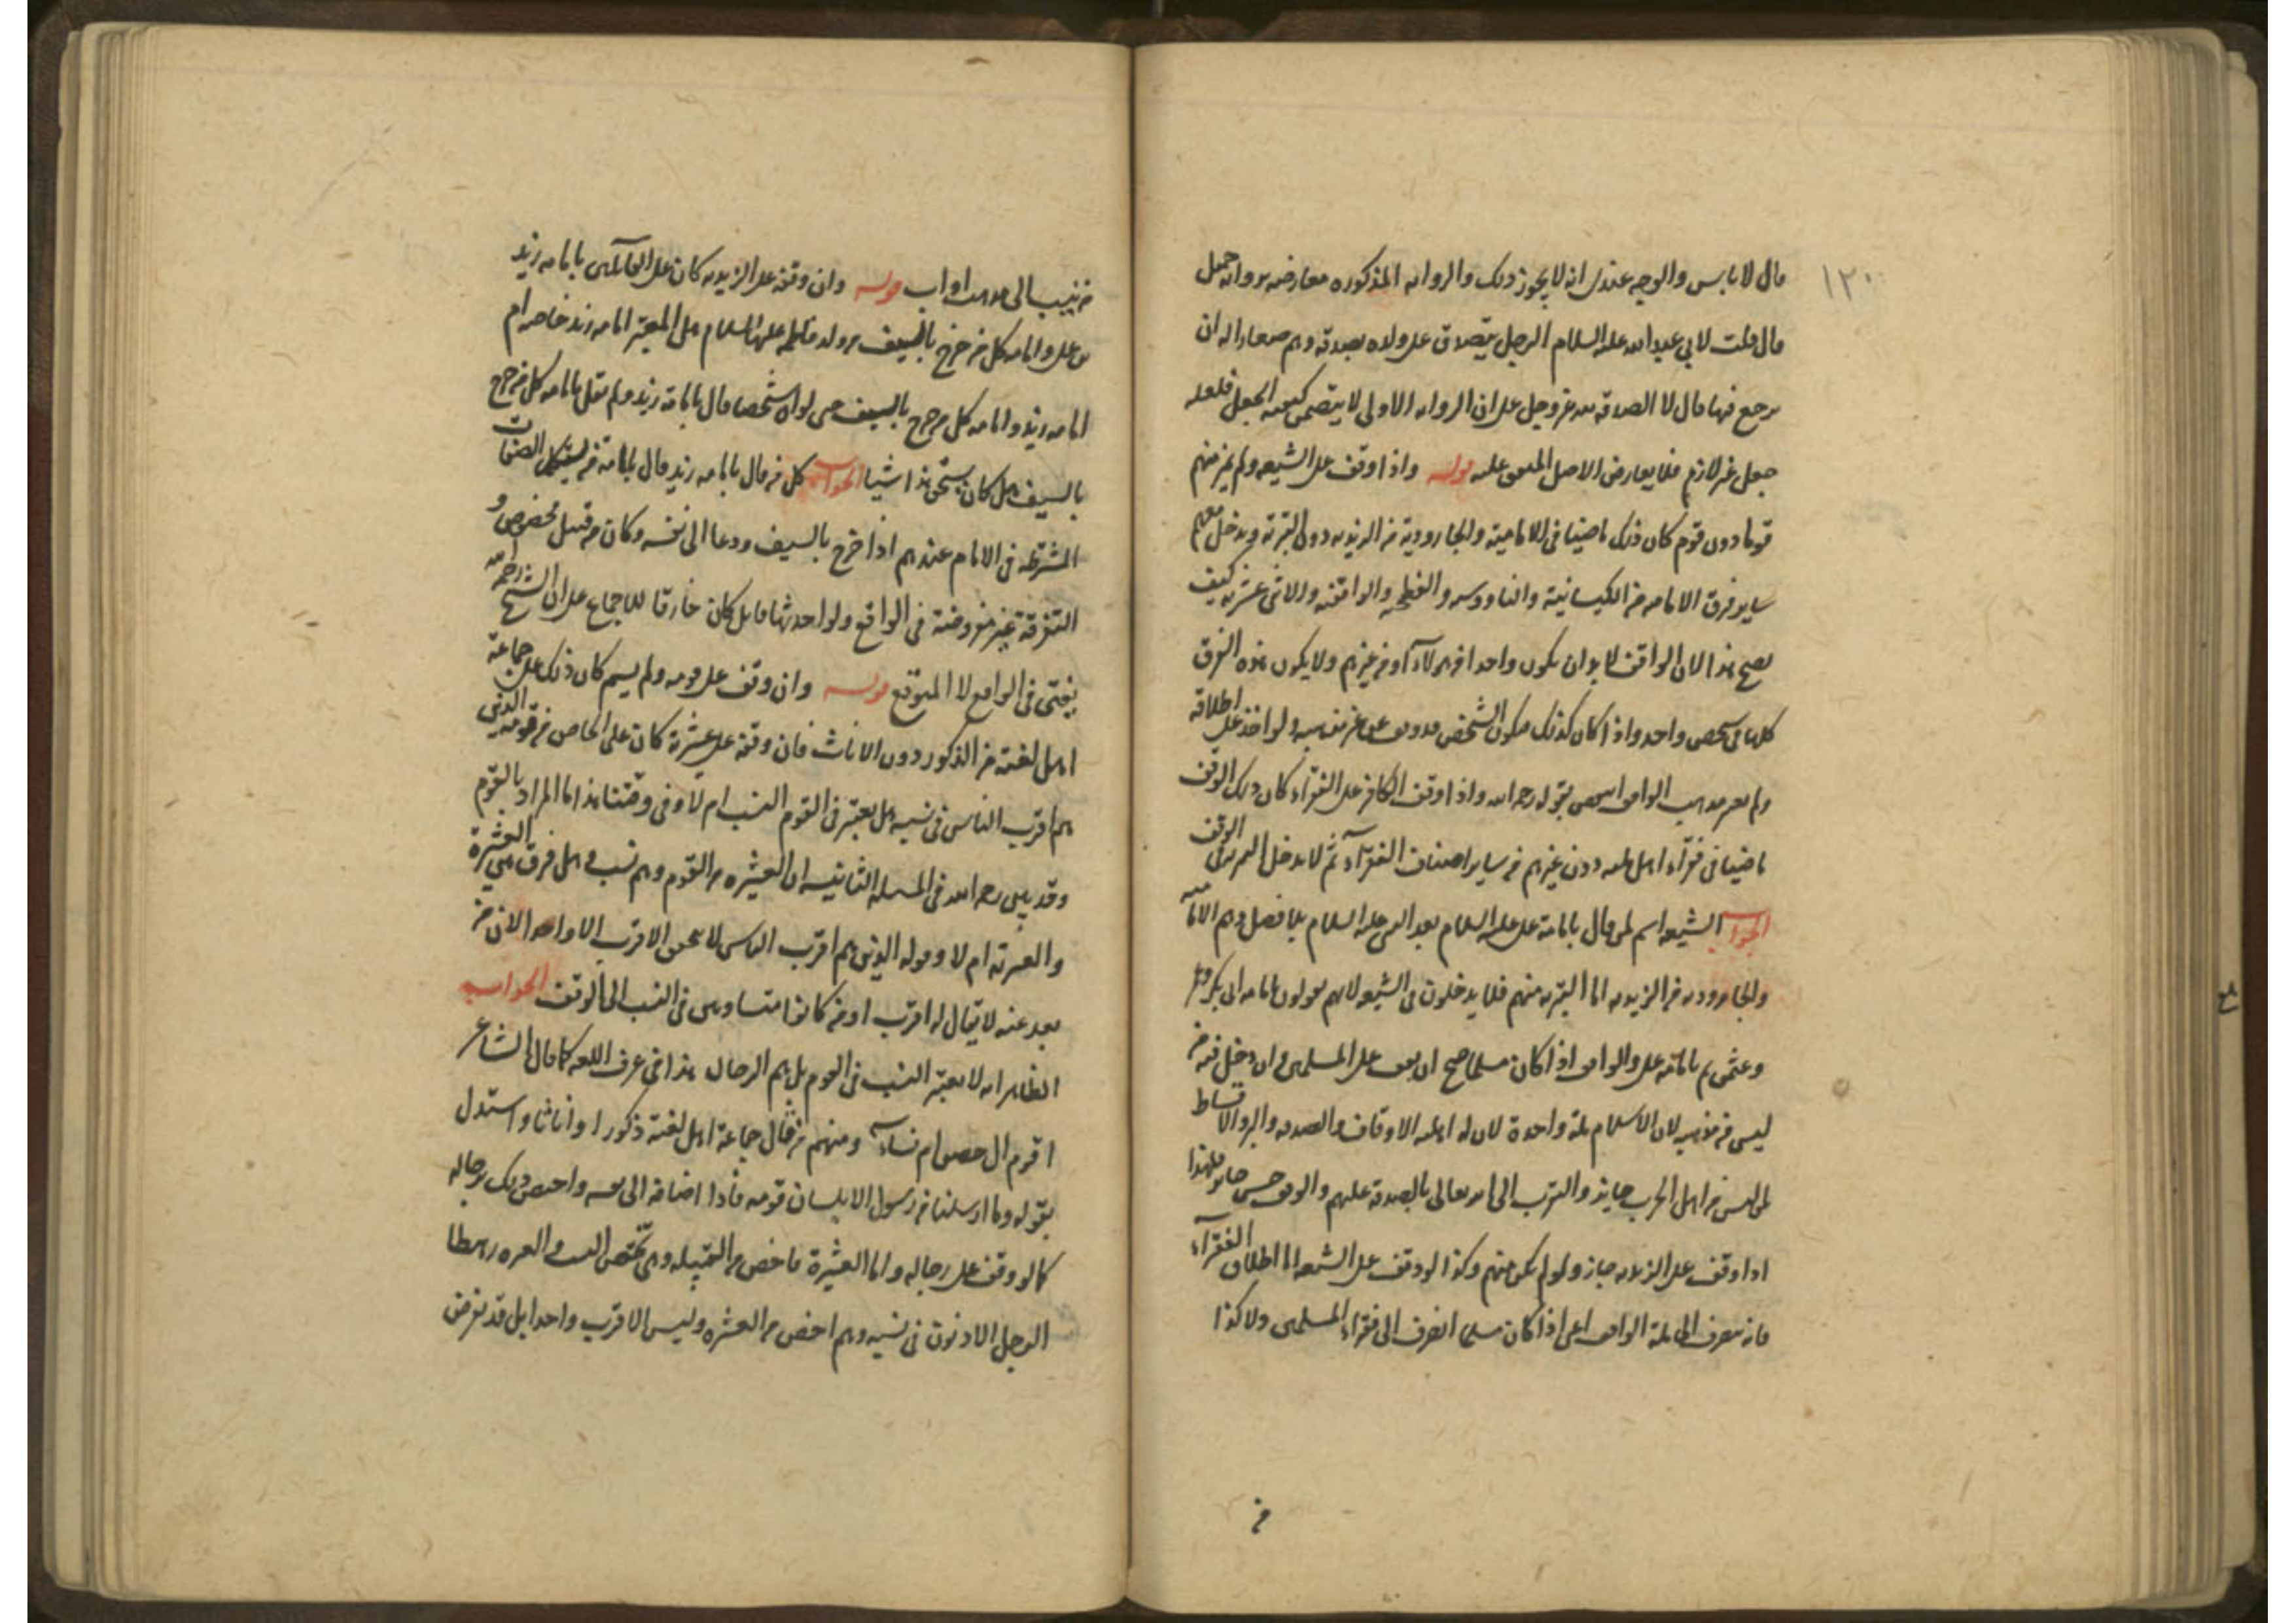 ١٢٠
قال لا باس والوجه عندى انه لا يجوز ذلك والروايه المذكوره معارضه بروايه جميل
قال قلت لابي عبد الله عليه السلام الرجل يتصدق على ولده بصدقة وهم صغار اله ان
يرجع فيها قال لا الصدقة لله عز وجل على ان الروايه الاولى لا يتضمن كيفيه الجعل فلعله
جعل غير لازم فلا يعارض الاصل المتفق عليه قوله واذا وقف على الشيعه ولم يميز منهم
قوما دون قوم كان ذلك ماضيا فى الاماميه والجاروديه من الزيديه دون البتريه ويدخل معهم
ساير فرق الاماميه من الكيسانية والناووسيه والفطحيه والواقفه والاثنى عشريه كيف
يصح هذا لان الواقف لا بد ان يكون واحدا من هولاء او من غيرهم ولا يكون هذه الفرق
كلها فى شخص واحد واذا كان كذلك فيكون الشخص قد وقف على غير مذهبه ولو اخذ على اطلاقه
ولم يعتبر مذهب الواقف انتقض بقوله رحمه الله واذا وقف الكافر على الفقراء كان ذلك الوقف
ماضيا فى فقراء اهل ملته دون غيرهم من ساير اصناف الفقراء ثم لا يدخل البتريه فى الوقف
الجواب الشيعه اسم لمن قال بامامة على عليه السلام بعد النبى عليه السلام بلا فصل وهم الاماميه
والجاروديه من الزيديه اما البتريه منهم فلا يدخلون فى الشيعه لانهم يقولون بامامه ابى بكر وعمر
وعثمن ثم بامامة على والواقف اذا كان مسلما صح ان يقف على المسلمين وان دخل فيه من
ليس من مذهبه لان الاسلام ملة واحدة لان له اهليه الاوقاف والصدقه والبر والاقساط
لمن ليس من اهل الحرب جايز والتقرب الى الله تعالى بالصدقة عليهم والوقف حسن جايز فلهذا
اذا وقف على الزيديه جاز ولو لم يكن منهم وكذا لو وقف على الشيعه اما اطلاق الفقراء
فانه ينصرف الى ملة الواقف اعنى اذا كان مسلما انصرف الى فقراء المسلمين ولا كذا
من
من ينسب الى مذهب او اب قوله وان وقفه على الزيديه كان على القائلين بامامه زيد
بن على وامامه كل من خرج بالسيف من ولد فاطمه عليها السلام هل المعتبر امامه زيد خاصه ام
امامه زيد وامامه كل من خرج بالسيف حتى لو ان شخصا قال بامامة زيد ولم يقل بامامه كل من خرج
بالسيف هل كان يستحق هذا شيا الجواب كل من قال بامامه زيد قال بامامة من يستكمل الصفات
المشترطه فى الامام عندهم اذا خرج بالسيف ودعا الى نفسه وكان من قبيل مخصوص و
التفرقة غير مفروضة فى الواقع ولو احدثها قايل كان خارقا للاجماع على ان الشيخ رحمه الله
يفتى فى الواقع لا المتوقع قوله وان وقف على قومه ولم يسم كان ذلك على جماعة
اهل لغته من الذكور دون الاناث فان وقفه على عشيرته كان على الخاص من قومه الذين
هم اقرب الناس فى نسبه هل يعتبر فى القوم النسب ام لا وفى وقتنا هذا ما المراد بالقوم
وقد بين رحمه الله فى المسله الثانيه ان العشيره من القوم وهم نسب وهل فرق بين العشيرة
والعترته ام لا وقوله الذين هم اقرب الناس لا يتحقق الاقرب الا واحد لان من
بعد عنه لا يقال له اقرب او من كانوا متساوين فى النسب الى الوقف الجواب
الظاهر انه لا يعتبر النسب فى القوم بل هم الرجال هذا فى عرف اللغه كما قال الشاعر
اقوم ال حصن ام نساء ومنهم من قال جماعة اهل لغته ذكورا واناثا واستدل
بقوله وما ارسلنا من رسول الا بلسان قومه فاذا اضافه الى نفسه واختص ذلك برجاله
كما لو وقف على رجاله واما العشيرة فاخص من القبيله وهى تختص النسب والعتره رهط
الرجل الادنون فى نسبه وهم اخص من العشيره وليس الاقرب واحدا بل قد يفرض